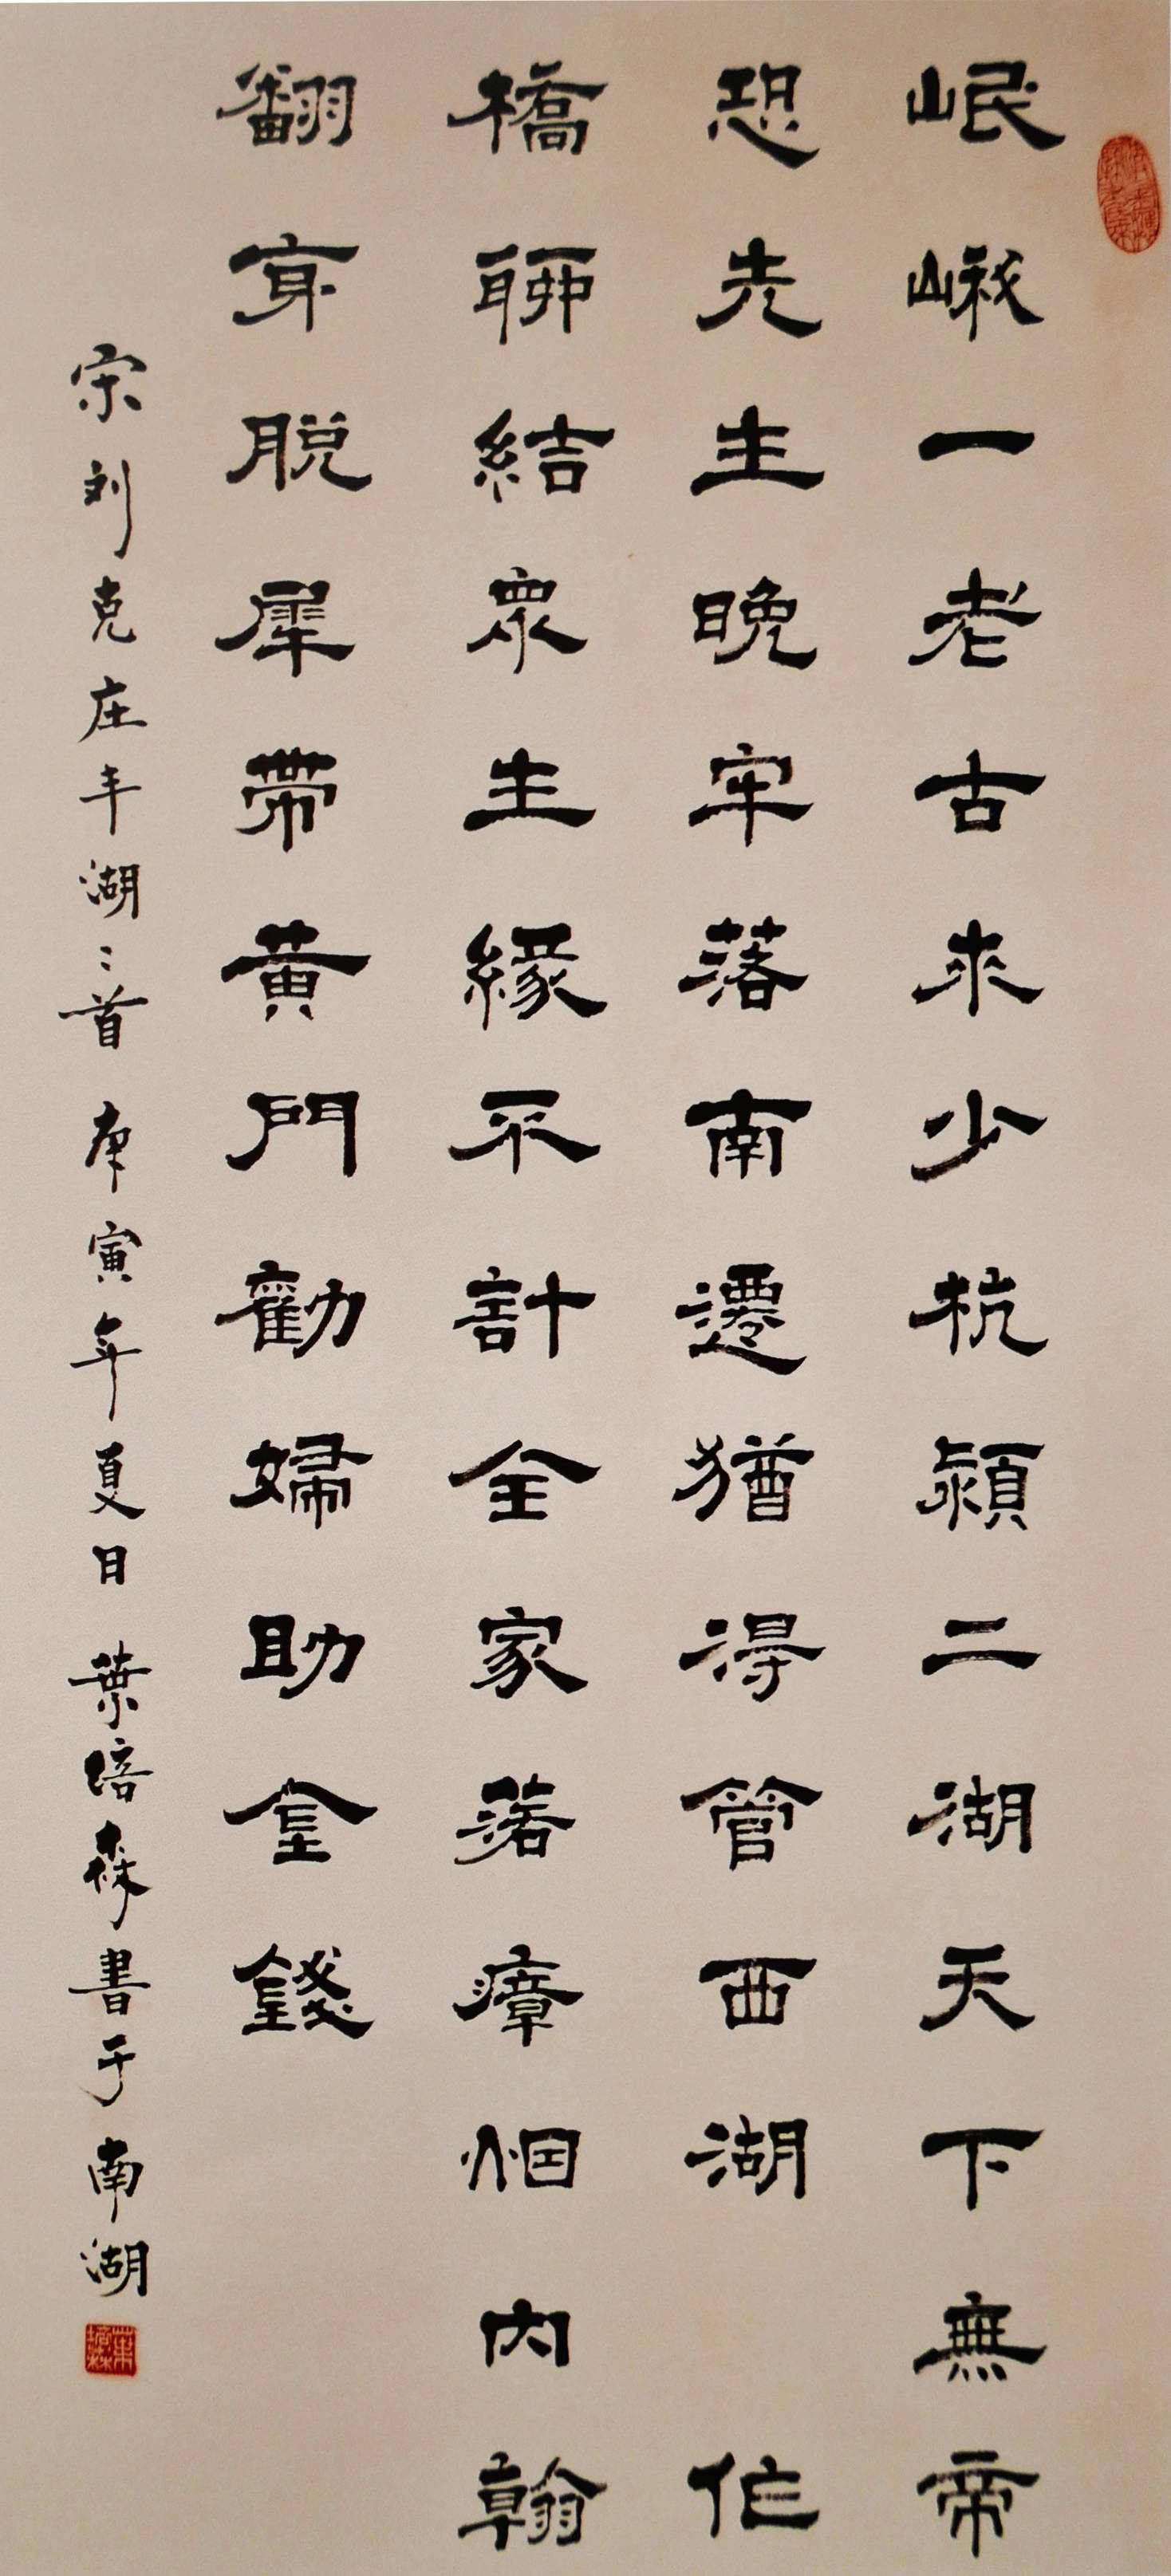 岷峨一老古來少杭潁二湖天下無帝
恐先生晚牢落南遷猶得管西湖 作
橋聊結眾生緣不計全家落瘴烟內翰
翻身脫犀帶黃門勸婦助金錢
宋刘克庄丰湖二首 庚寅年夏日 葉培森書于南湖